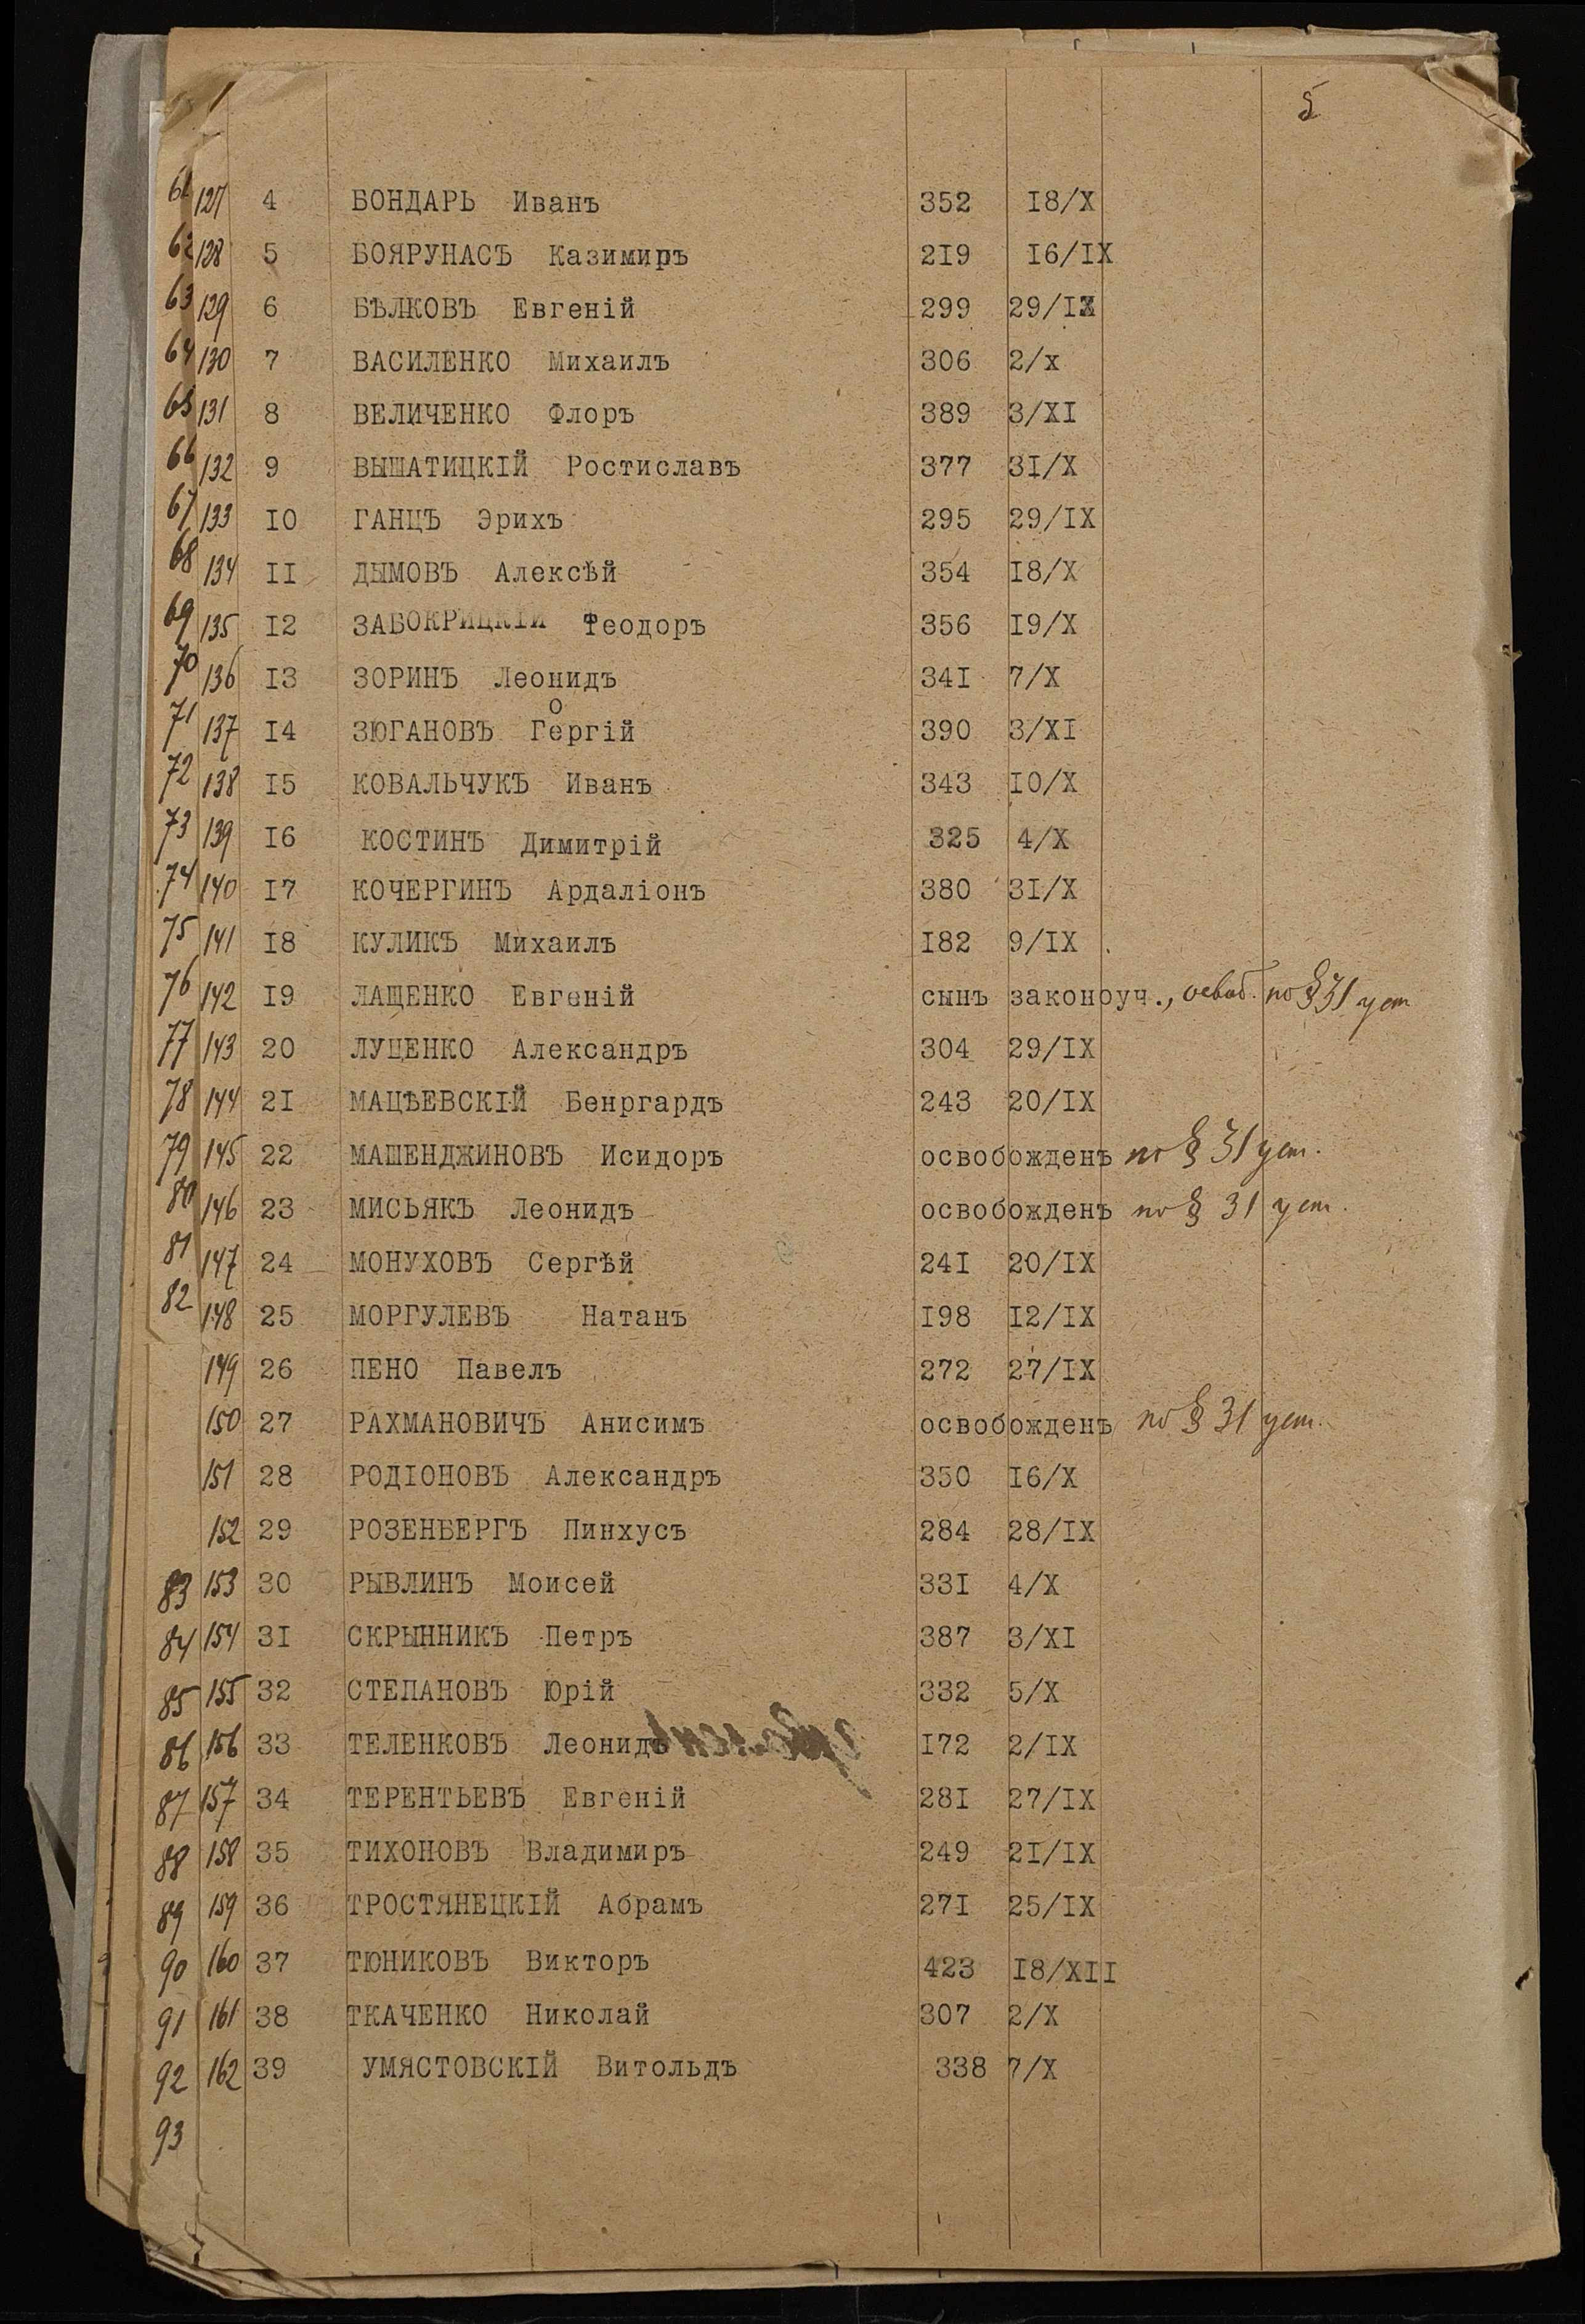 5
61 127 4 БОНДАРЬ Иванъ 352 I8/X
62 128 5 БОЯРУНАСЪ Казимиръ 2I9 I6/IX
63 129 6 БѢЛКОВЪ Евгеній 299 29/IX
64 130 7 ВАСИЛЕНКО Михаилъ 306 2/х
65 131 8 ВЕЛИЧЕНКО Флоръ 389 3/XI
66 132 9 ВЫШАТИЦКІЙ Ростиславъ 377 3I/X
67 133 I0 ГАНЦЪ Эрихъ 295 29/IX
68 134 II ДЫМОВЪ Алексѣй 354 I8/X
69 135 I2 ЗАБОКРИЦКІЙ Феодоръ 356 I9/X
70 136 I3 ЗОРИНЪ Леонидъ 34I 7/X
71 137 I4 ЗЮГАНОВЪ Георгій 390 3/XI
72 138 I5 КОВАЛЬЧУКЪ Иванъ 343 I0/X
73 139 I6 КОСТИНЪ Димитрій 325 4/X
74 140 I7 КОЧЕРГИНЪ Ардаліонъ 380 3I/X
75 141 I8 КУЛИКЪ Михаилъ I82 9/IX
76 142 I9 ЛАЩЕНКО Евгеній сынъ законоуч., освоб. по § 31 уст
77 143 20 ЛУЦЕНКО Александръ 304 29/IX
78 144 2I МАЦѢЕВСКІЙ Бенргардъ 243 20/IX
79 145 22 МАШЕНДЖИНОВЪ Исидоръ освобожденъ по § 31 уст.
80 146 23 МИСЬЯКЪ Леонидъ освобожденъ по § 31 уст.
81 147 24 МОНУХОВЪ Сергѣй 24I 20/IX
82 148 25 МОРГУЛЕВЪ Натанъ I98 I2/IX
149 26 ПЕНО Павелъ 272 27/IX
150 27 РАХМАНОВИЧЪ Анисимъ освобожденъ по § 31 уст.
151 28 РОДІОНОВЪ Александръ 350 I6/X
152 29 РОЗЕНБЕРГЪ Пинхусъ 284 28/IX
83 153 30 РЫВЛИНЪ Моисей 33I 4/X
84 154 3I СКРЫННИКЪ Петръ 387 3/XI
85 155 32 СТЕПАНОВЪ Юрій 332 5/X
86 156 33 ТЕЛЕНКОВЪ Леонидъ I72 2/IX
87 157 34 ТЕРЕНТЬЕВЪ Евгеній 28I 27/IX
88 158 35 ТИХОНОВЪ Владимиръ 249 2I/IX
89 159 36 ТРОСТЯНЕЦКІЙ Абрамъ 27I 25/IX
90 160 37 ТЮНИКОВЪ Викторъ 423 I8/XII
91 161 38 ТКАЧЕНКО Николай 307 2/X
92 162 39 УМЯСТОВСКІЙ Витольдъ 338 7/X
93